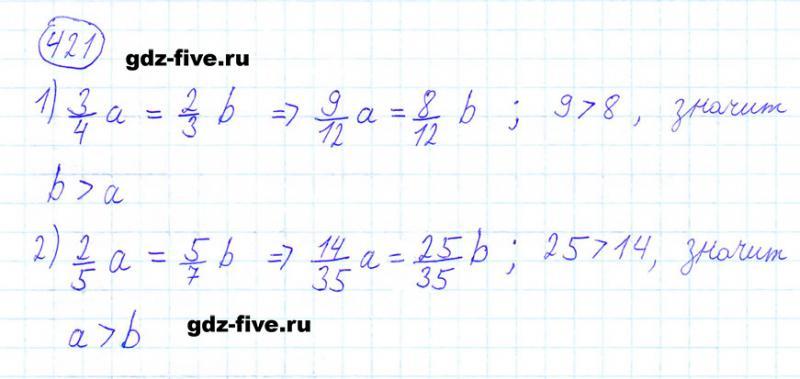 421
gdz-five.ru
1) 3/4 a = 2/3 b => 9/12 a = 8/12 b ; 9 > 8 , значит
b > a
2) 2/5 a = 5/7 b => 14/35 a = 25/35 b ; 25 > 14, значит
a > b
gdz-five.ru